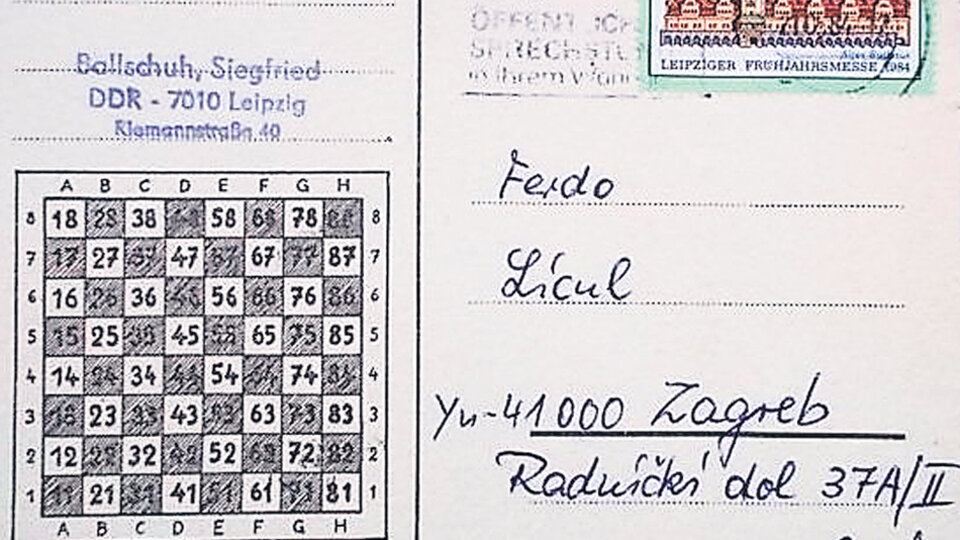 Ballschuh, Siegfried
DDR - 7010 Leipzig
Riemannstraße 40
A B C D E F G H
8 18 28 38 48 58 68 78 88 8
7 17 27 37 47 57 67 77 87 7
6 16 26 36 46 56 66 76 86 6
5 15 25 35 45 55 65 75 85 5
4 14 24 34 44 54 64 74 84 4
3 13 23 33 43 53 63 73 83 3
2 12 22 32 42 52 62 72 82 2
1 11 21 31 41 51 61 71 81 1
A B C D E F G H
ÖFFENT ICH
SPRECHSTU
in Ihrem
LEIPZIGER FRÜHJAHRSMESSE 1984
Ferdo
Licul
Yu-41000 Zagreb
Radnički dol 37A/II